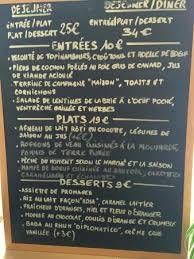 DÉJEUNER
DÉJEUNER/DINER
ENTRÉE/PLAT
PLAT/DESSERT 25€
ENTRÉE/PLAT/DESSERT
34€
ENTRÉES 10€
- VELOUTÉ DE TOPINAMBOURS, CROÛTONS ET
- PIÈCES DE COCHON POÊLÉS AU FOIE GRAS DE CANARD, JUS
DE VIANDE ACIDULÉ
- TERRINE DE CAMPAGNE "MAISON", TOASTS ET
CORNICHONS
- SALADE DE LENTILLES DE LA L'OEUF POCHÉ,
VENTRÈCHE ET HERBES
PLATS 19€
- AGNEAU DE LAIT RÔTI EN COCOTTE, LÉGUMES DE
SAISON AU JUS
- ROGNONS DE VEAU CUISINÉS À LA MOUTARDE,
POMME DE TERRE PURÉE
- PÊCHE DU MOMENT SELON LE MARCHÉ ET LA SAISON
- DE BOEUF CUISINÉ AU
DESSERTS 9€
- ASSIETTE DE FROMAGES
- RIZ AU LAIT FAÇON CARAMEL LAITIER
- FRAÎCHEUR D'ORANGES, MIEL ET FLEUR D'ORANGER
- MOUSSE AU CHOCOLAT, COULIS D'ORANGE ET CRUMBLE
- BABA AU RHUM "DIPLOMATICO", CRÈME À LA
VANILLE (+3€)